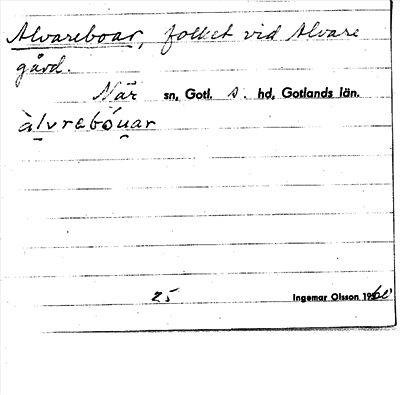 Alvareboar, folket vid Alvare
gård.
När sn, Gotl. s. hd, Gotlands län.
àlvrebóuar
25 Ingemar Olsson 1960